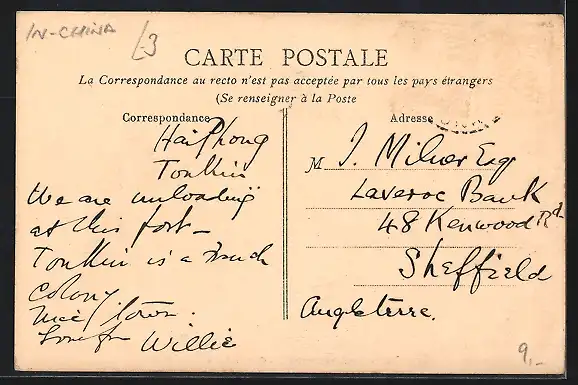 IN-CHINA
L3
CARTE POSTALE
La Correspondance au recto n'est pas acceptée par tous les pays étrangers
(Se renseigner à la Poste
Correspondance
HaiPhong
Tonkin
We are unloading
at this port -
Tonkin is a French
colony.
Nice town.
Love fr Willie
Adresse
M J. Milner Esq
Laveroc Bank
48 Kenwood Rd
Sheffield
Angleterre.
9.-